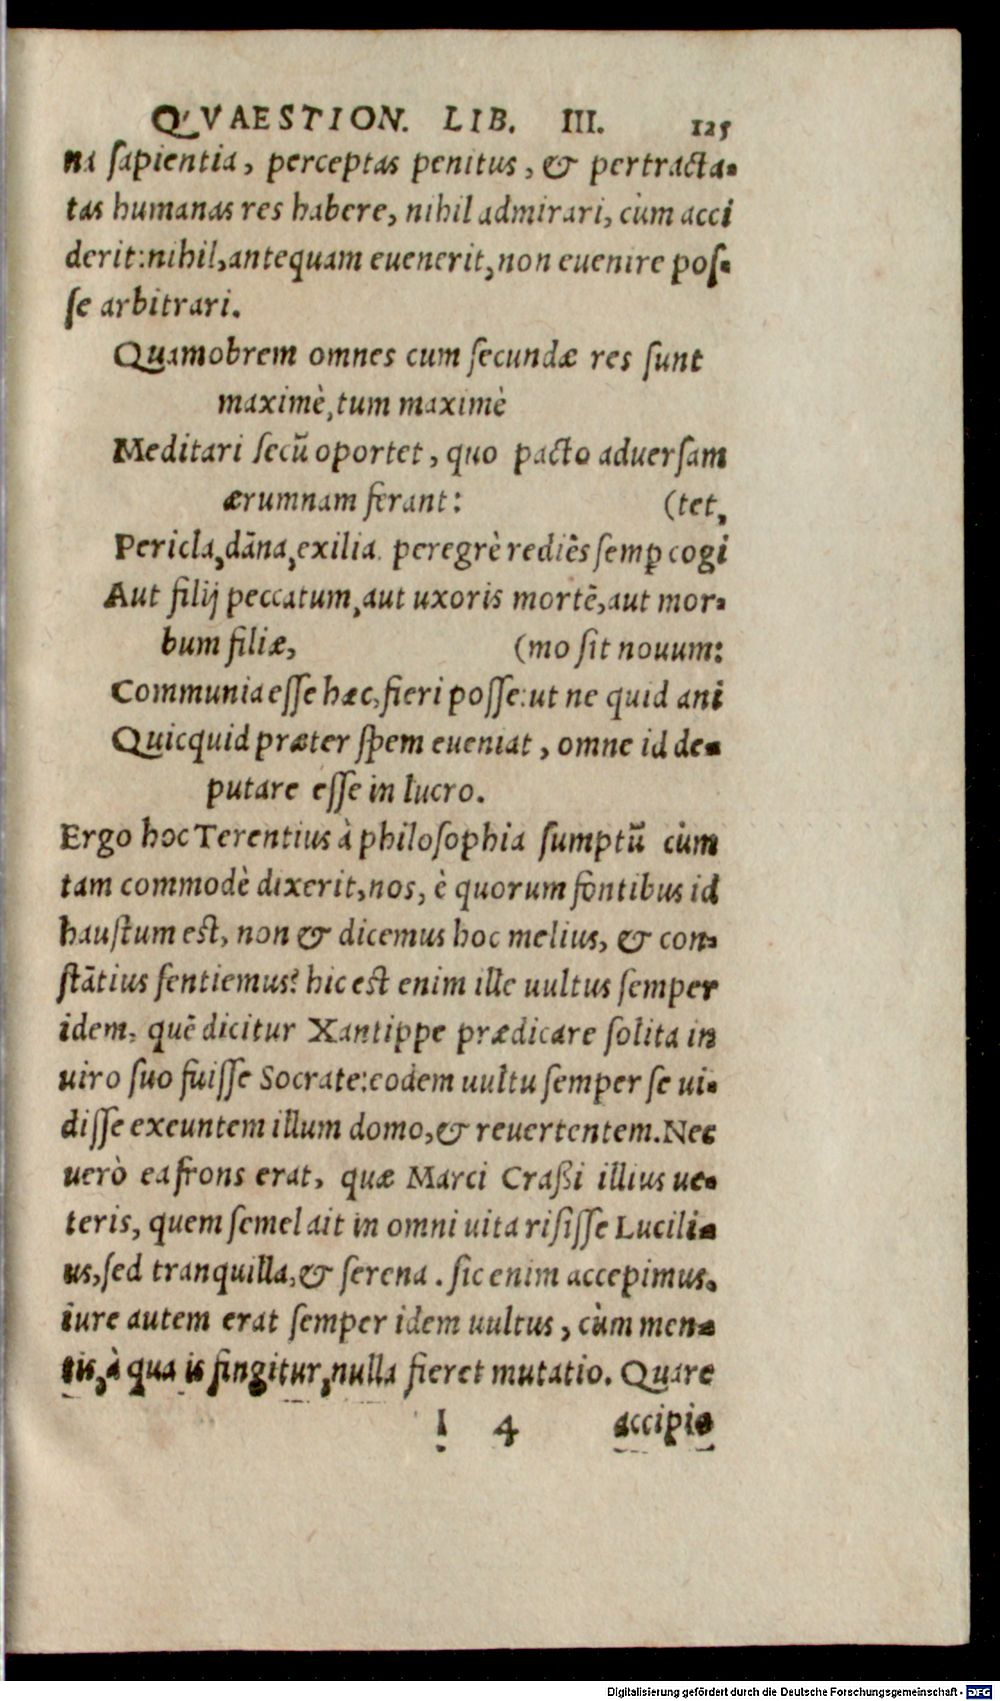 QVAESTION. LIB. III. 125
na sapientia, perceptas penitus, & pertracta-
tas humanas res habere, nihil admirari, cùm acci
derit: nihil, antequam euenerit, non euenire pos-
se arbitrari.
Quamobrem omnes cum secundæ res sunt
maximè, tum maximè
Meditari secũ oportet, quo pacto aduersam
ærumnam ferant: (tet,
Pericla, dãna, exilia. peregrè rediẽs semꝑ cogi
Aut filij peccatum, aut uxoris mortẽ, aut mor-
bum filiæ, (mo sit nouum:
Communia esse hæc, fieri posse: ut ne quid ani
Quicquid præter spem eueniat, omne id de-
putare esse in lucro.
Ergo hoc Terentius à philosophia sumptũ cùm
tam commodè dixerit, nos, è quorum fontibus id
haustum est, non & dicemus hoc melius, & con-
stãtius sentiemus? hic est enim ille uultus semper
idem, quẽ dicitur Xantippe prædicare solita in
uiro suo fuisse Socrate: eodem uultu semper se ui-
disse exeuntem illum domo, & reuertentem. Nec
uerò ea frons erat, quæ Marci Craßi illius ue-
teris, quem semel ait in omni uita risisse Lucili-
us, sed tranquilla, & serena. sic enim accepimus.
iure autem erat semper idem uultus, cùm men-
tis, à qua is fingitur, nulla fieret mutatio. Quare
I 4 accipio
Digitalisierung gefördert durch die Deutsche Forschungsgemeinschaft - DFG